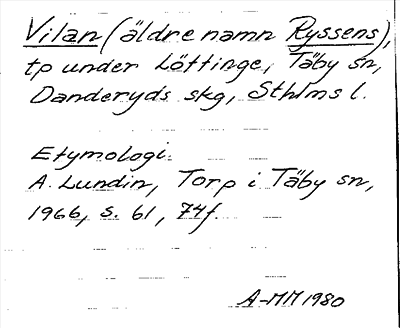 Vilan (äldre namn Ryssens),
tp under Löttinge, Täby sn,
Danderyds skg, Sthlms l.
Etymologi:
A. Lundin, Torp i Täby sn,
1966, s. 61, 74f.
A-MM 1980